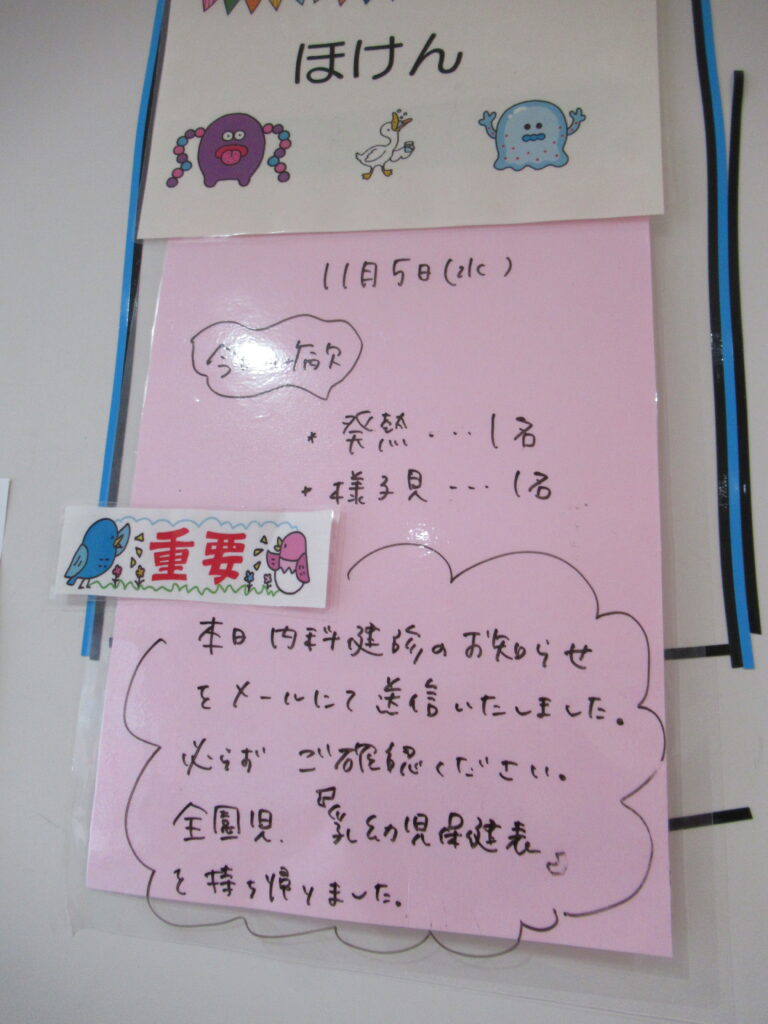 ほけん
11月5日(水)
今 病欠
・発熱・・・1名
・様子見・・・1名
重要
本日内科健診のお知らせ
をメールにて送信いたしました。
必らず ご確認ください。
全園児、『乳幼児保健表』
を持ち帰りました。